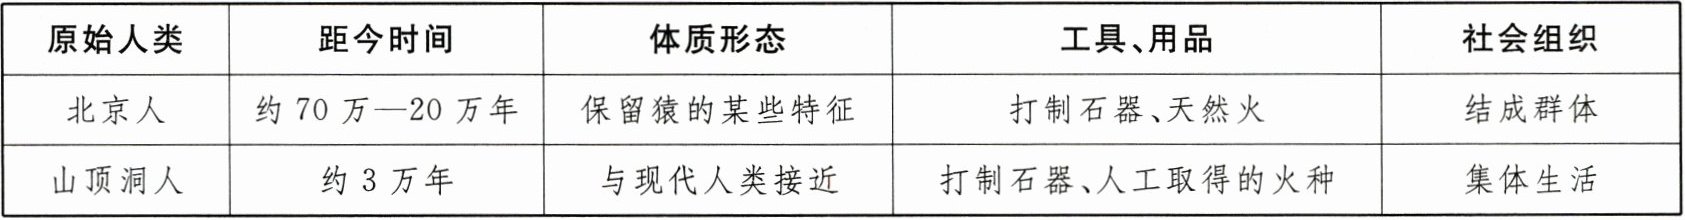 原始人类 距今时间 体质形态 工具、用品 社会组织
北京人 约70万—20万年 保留猿的某些特征 打制石器、天然火 结成群体
山顶洞人 约3万年 与现代人类接近 打制石器、人工取得的火种 集体生活